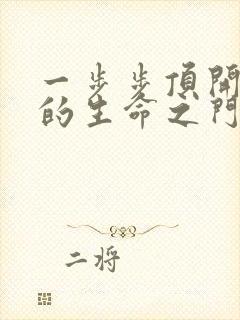 一步步頂開
的生命之門
二將